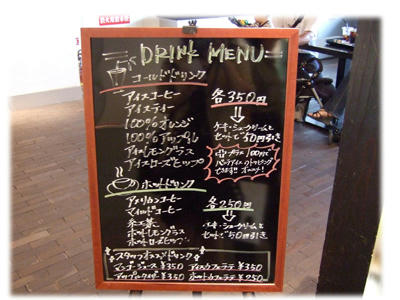 DRINK MENU
コールドドリンク
アイスコーヒー
アイスティー
100%オレンジ
100%アップル
アイスレモングラス
アイスローズヒップ
各350円
ケーキ・シュークリームと
セットで50円引き
プラス100円で
バニラアイスのトッピング
できます!!
ホットドリンク
アメリカンコーヒー
マイルドコーヒー
紅茶
ホットレモングラス
ホットローズヒップ
各250円
ケーキ・シュークリームと
セットで50円引き
スタッフオススメドリンク
マンゴージュース ¥350 アイスカフェラテ ¥350
アップルタイザー ¥350 ホットカフェラテ ¥250